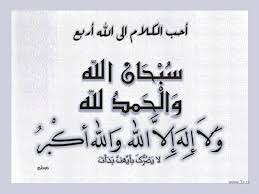 أحب الكلام الى الله أربع
سُبْحَانَ الله
وَالْحَمْدُ لله
وَلَا إِلَهَ إِلَّا الله وَاللهُ أَكْبَرُ
لا يَضُرُّكَ بِأَيِّهِنَّ بَدَأْتَ